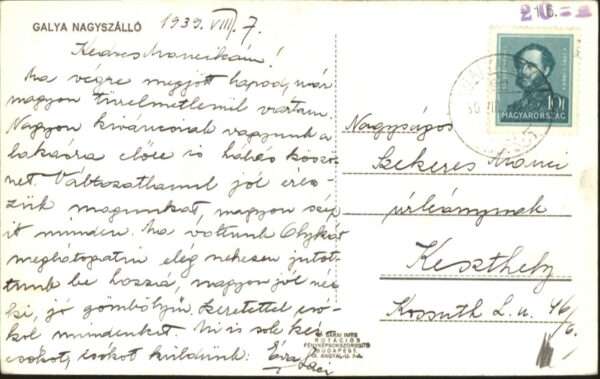 GALYA NAGYSZÁLLÓ
1939. VIII. 7.
Kedves Arancikám!
Ma végre megjött lapod, már
nagyon türelmetlenül vártam.
Nagyon kiváncsiak vagyunk a
lakásra előre is hálás köszö-
net. Változatlanul jól érez-
zük magunkat, nagyon szép
itt minden. Ma voltunk
meglátogatni elég nehezen jutot-
tunk be hozzá, nagyon jól néz
ki, jó gömbölyű. Szeretettel csó-
kol mindenkit. Mi is sok kéz-
csókot, csókot küldünk: Éva
Nagyságos
Szekeres Aranci
úrleánynak
Keszthely
Kossuth L. u. 46/b.
MAGYARORSZÁG
10f
BARAI IMRE
ROTÁCIÓS
FÉNYKÉPSOKSZOROSÍTÓ
BUDAPEST
20 = 1